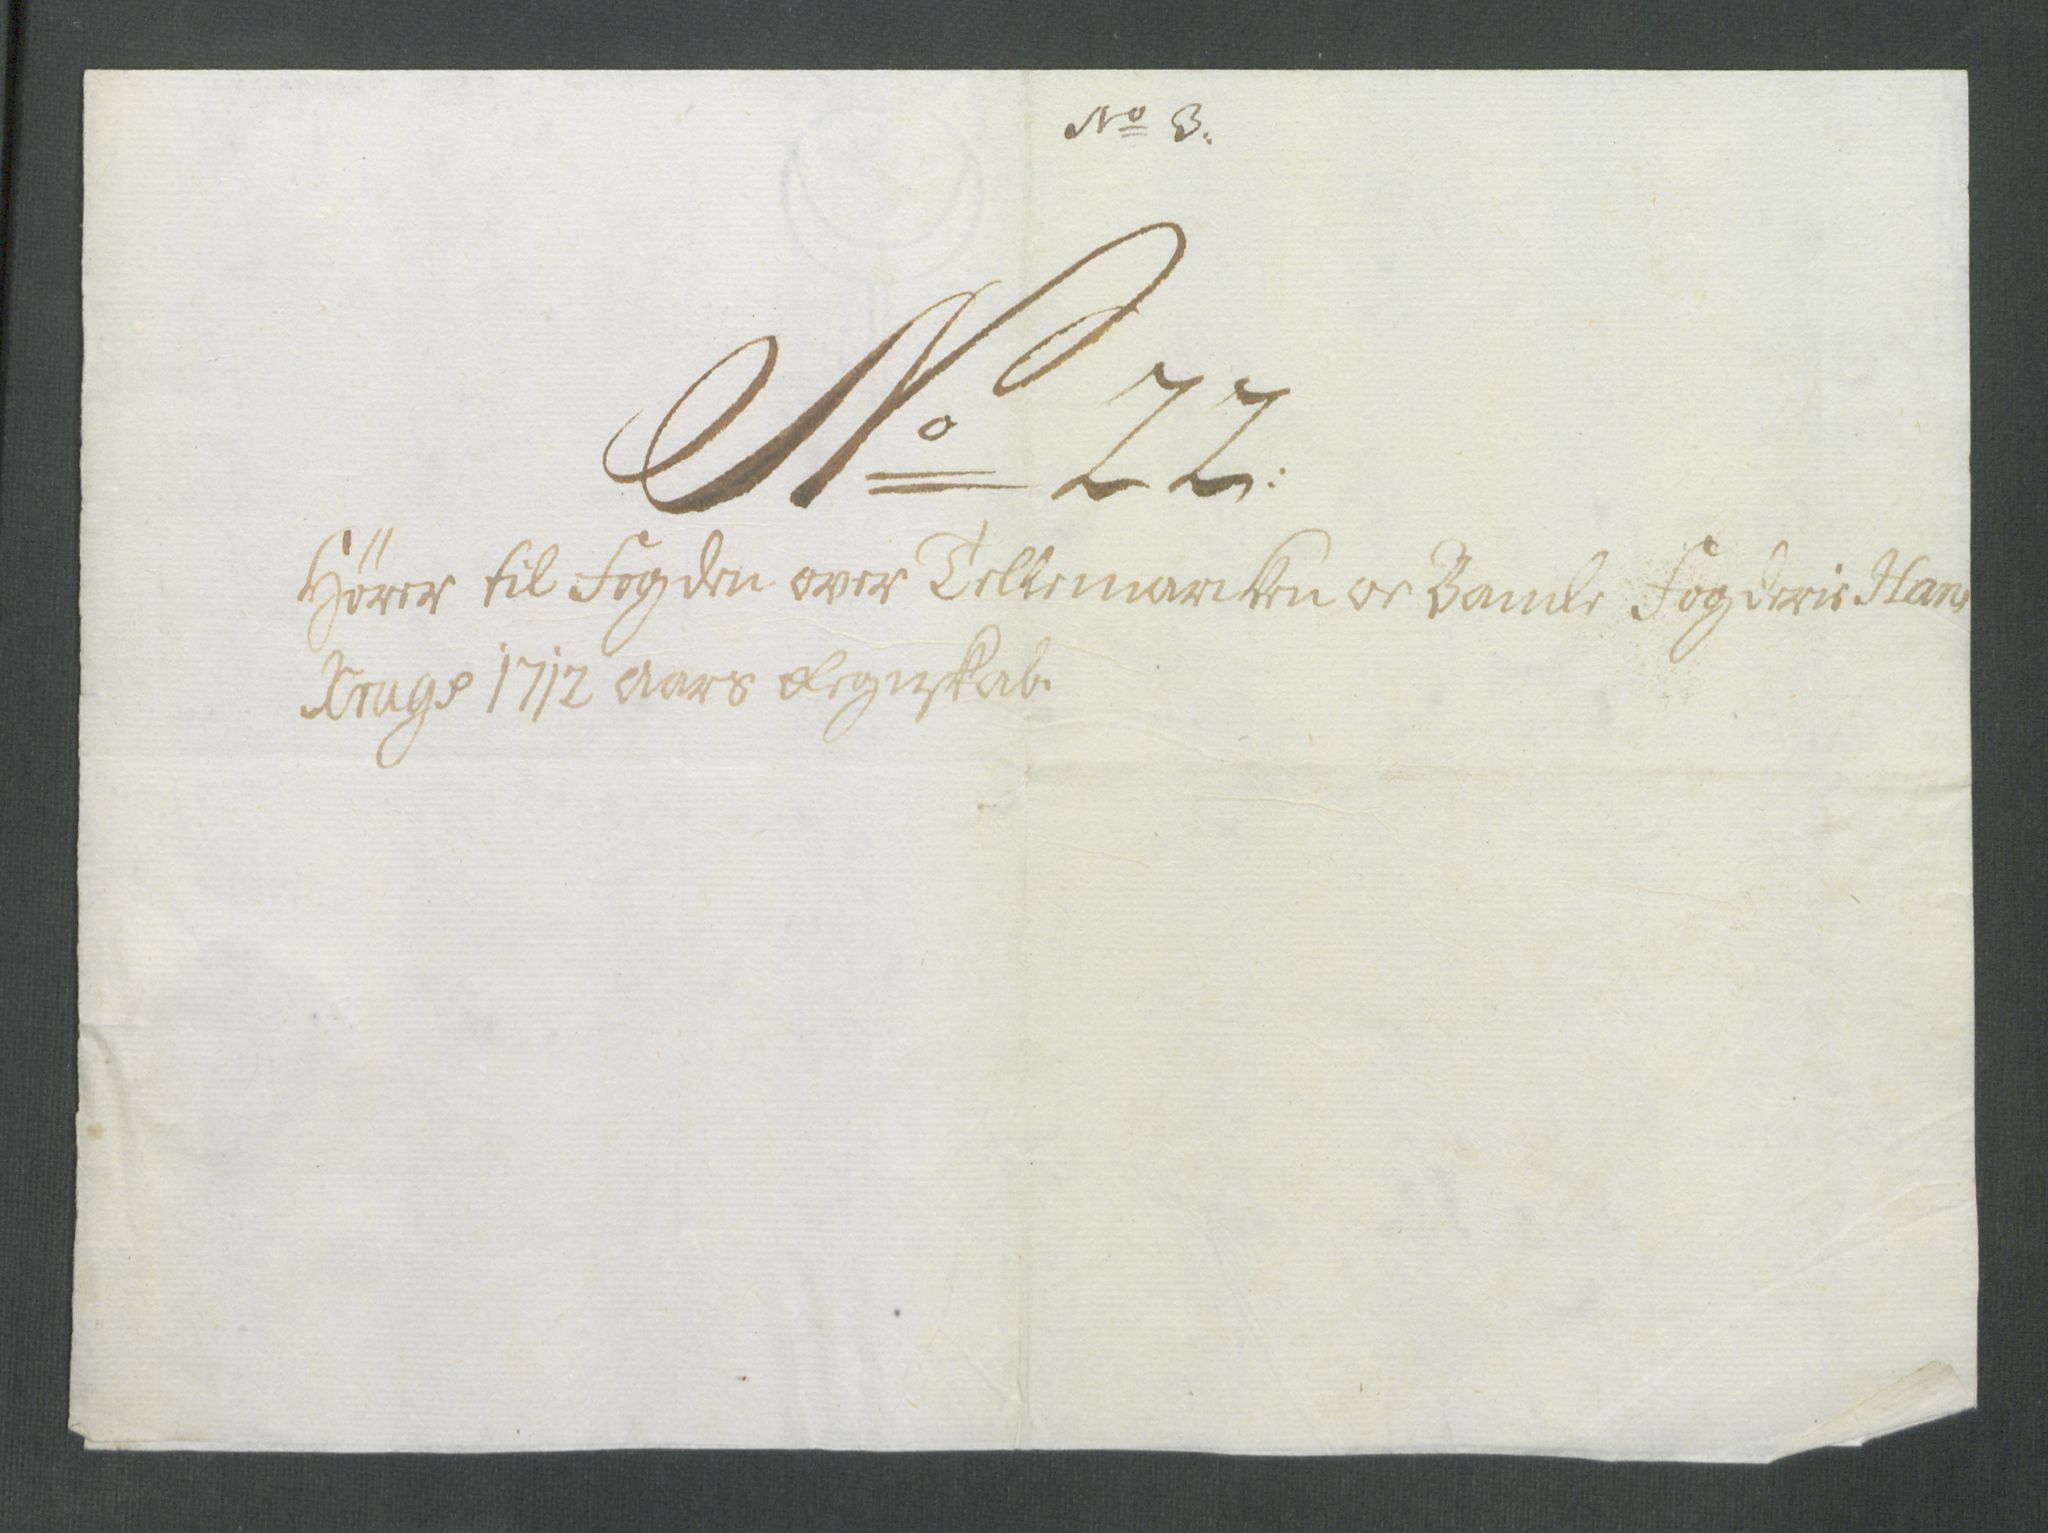 No 3.
No 22:
Hörer til Fogden over Tellemarcken oc Bamle Fogderie Hans
Krugs 1712 Aars Regnskab.